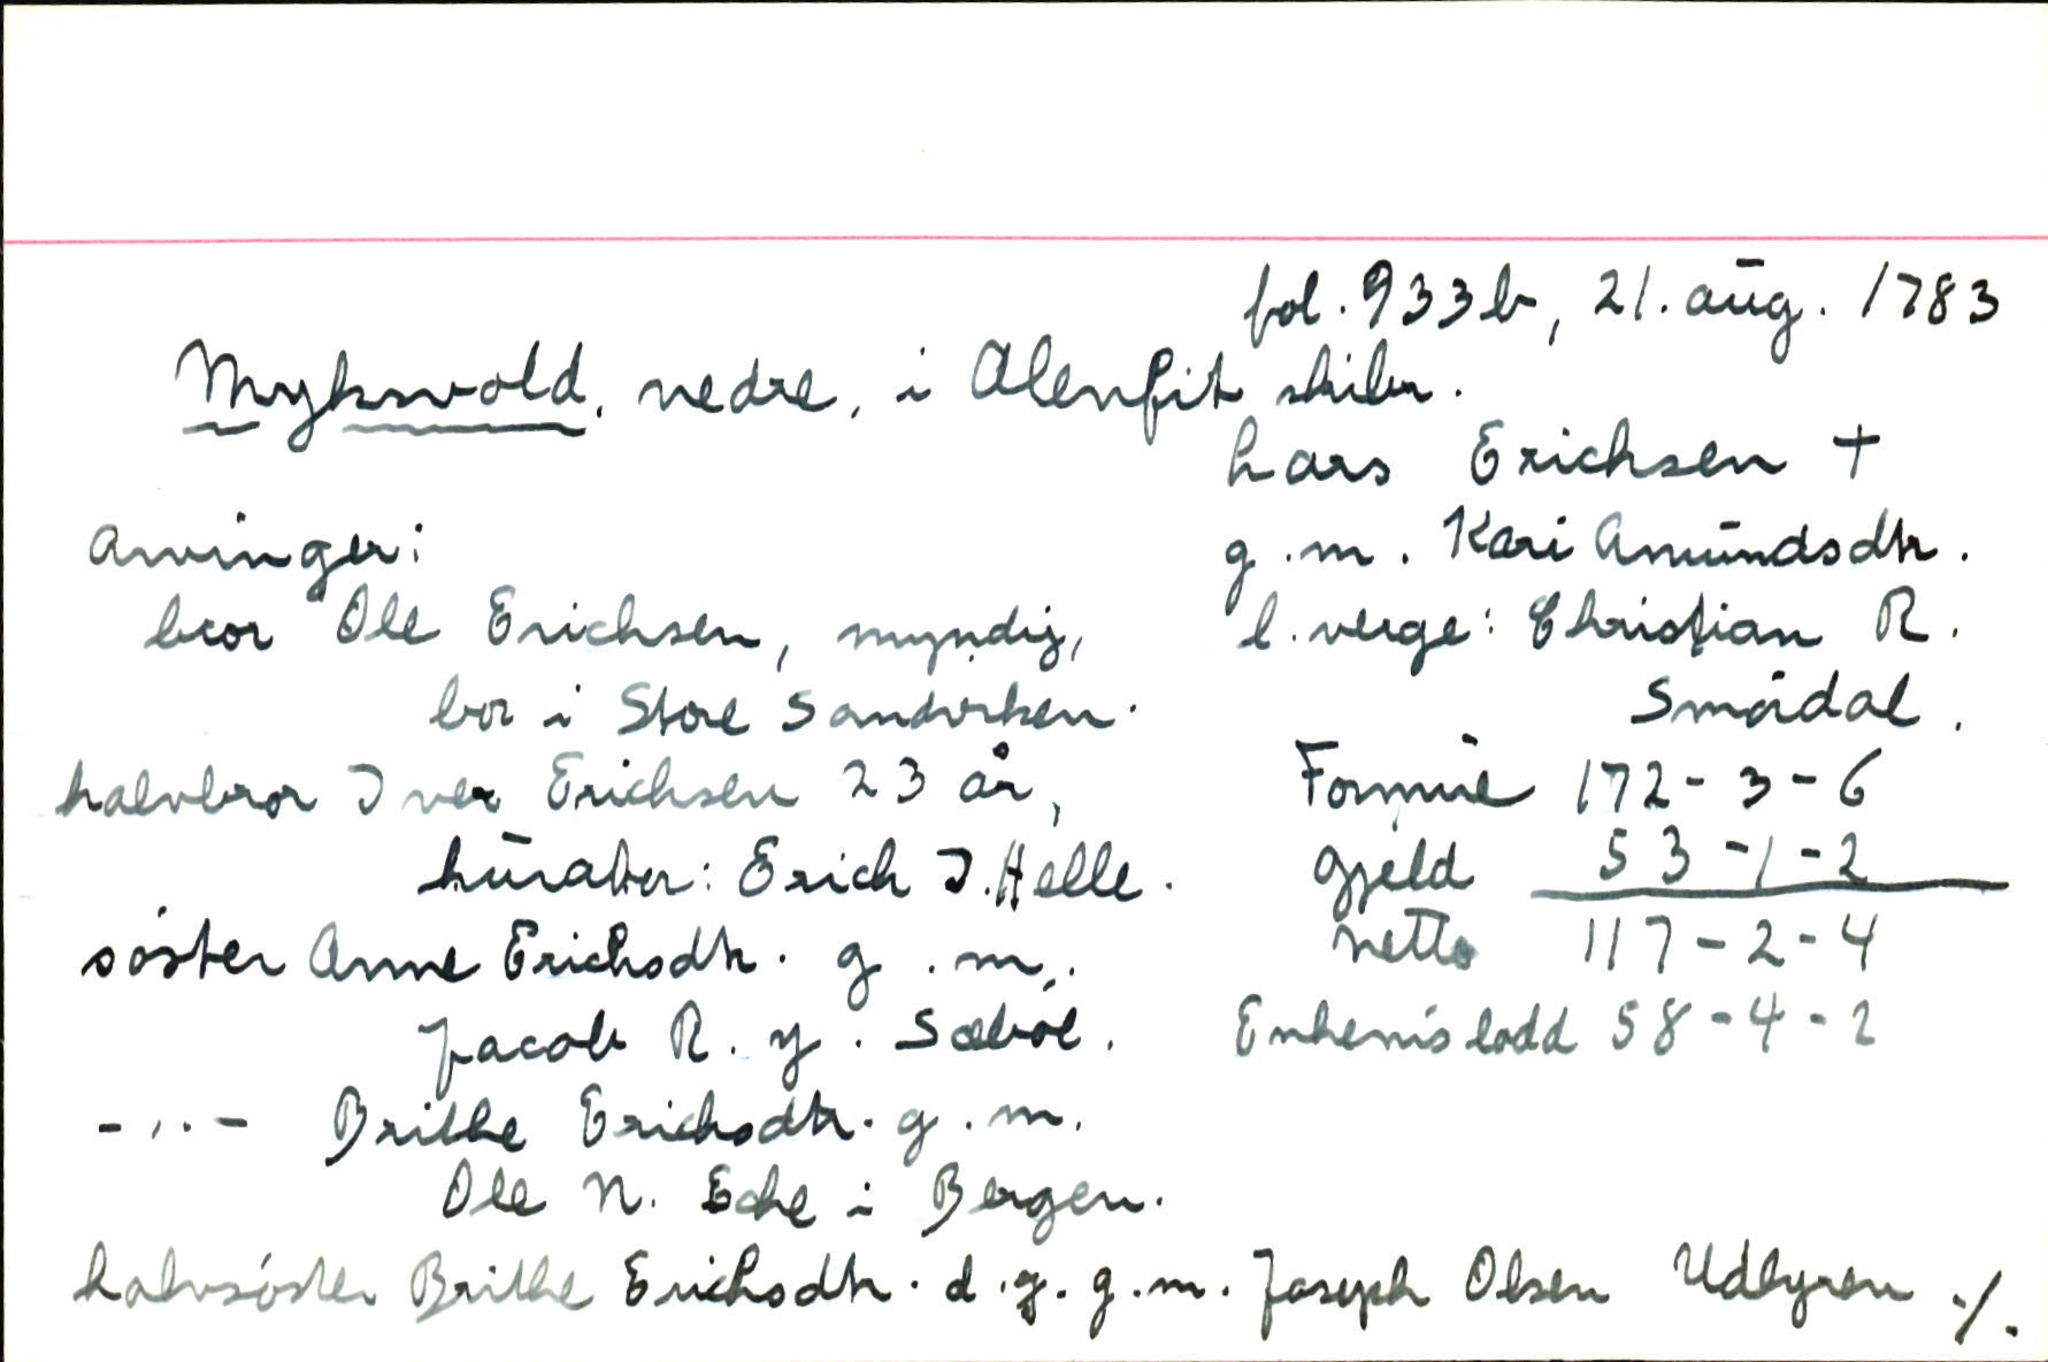 fol. 933b, 21. aug. 1783
Mykswold, nedre, i Alenfit skibr.
Lars Erichsen +
g.m. Kari Amundsdtr.
l.verge: Christian R.
Smådal.
Arvinger:
bror Ole Erichsen, myndig,
bor i Store Sandviken.
halvbror Iver Erichsen 23 år,
kurator: Erich I. Helle.
søster Anne Erichsdtr. g.m.
Jacob R. y. Sæbøl.
-"- Brithe Erichsdtr. g.m.
Ole N. Eche i Bergen.
halvsøster Brithe Erichsdtr. d.y. g.m. Joseph Olsen Udbyren ./.
Formue 172-3-6
Gjeld 53-1-2
Netto 117-2-4
Enkens lodd 58-4-2